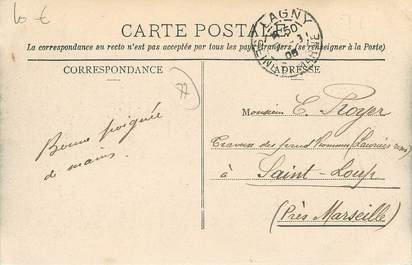 10 €
CARTE POSTALE
La correspondance au recto n'est pas acceptée par tous les pays étrangers (se renseigner à la Poste)
LAGNY
SEINE-ET-MARNE
CORRESPONDANCE
ADRESSE
77
Bonne poignée
de mains.
Monsieur E. Royer
Traverse des
à Saint-Loup
(Près Marseille)